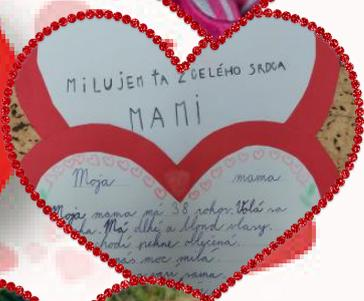 MILUJEM ŤA Z CELÉHO SRDCA
MAMI
Moja mama
Moja mama má 38 rokov. Volá sa
Má dlhé a blond vlasy.
chodí pekne oblečená.
nás moc milá.
sama